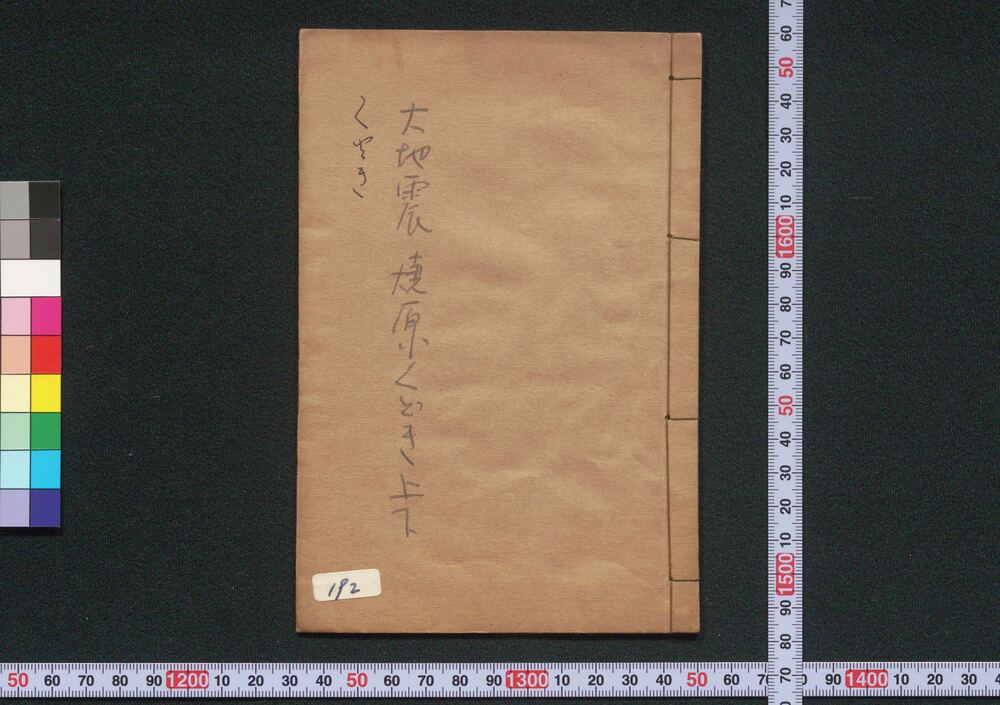 大地震焼原くどき上下
くどき
192
60
50
40
30
20
10
1600
90
80
70
60
50
40
30
20
10
1500
90
80
70
50
60
70
80
90
1200
10
20
30
40
50
60
70
80
90
1300
10
20
30
40
50
60
90
1400
10
20
30